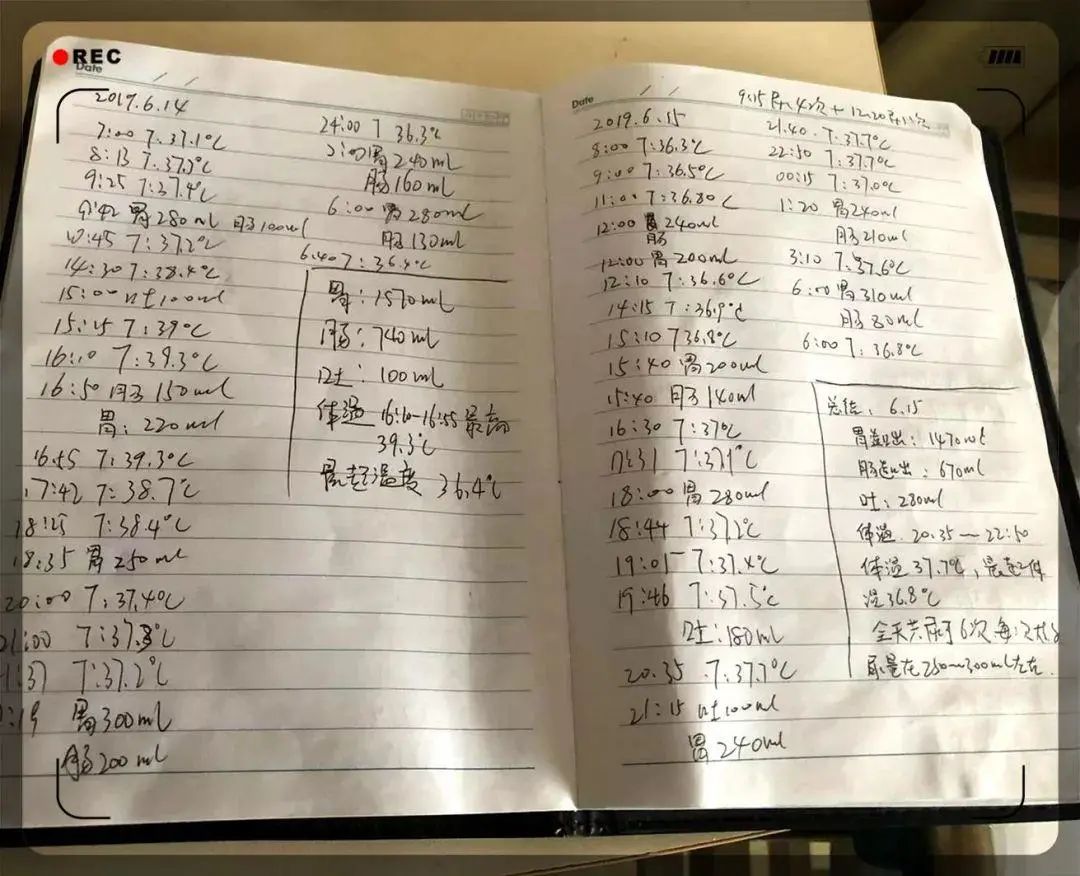 REC
Date
2019.6.14
7:00 T:37.1℃
8:13 T:37.3℃
9:25 T:37.4℃
9:42 胃280ml 肠100ml
10:45 T:37.2℃
14:30 T:38.4℃
15:00 吐100ml
15:25 T:39℃
16:10 T:39.3℃
16:50 肠150ml
胃:220ml
16:55 T:39.3℃
17:42 T:38.7℃
18:25 T:38.4℃
18:35 胃250ml
20:00 T:37.4℃
21:00 T:37.3℃
1:37 T:37.2℃
:19 胃300ml
肠200ml
24:00 T 36.3℃
2:00胃240ml
肠160ml
6:00胃280ml
肠130ml
6.40 T:36.4℃
胃:1570ml
肠:740ml
吐:100ml
体温 16:10-16:55最高
39.3℃
最低温度 36.4℃
Date
9.15尿4次+12.20尿1次
2019.6.15
8:00 T:36.3℃
9:00 T:36.5℃
11:00 T:36.8℃
12:00 胃240ml
肠
12:00胃200ml
12:10 T:36.6℃
14:15 T:36.9℃
15:10 T36.8℃
15:40 胃200ml
15:40 肠140ml
16:30 T:37℃
17:31 T:37.1℃
18:00胃280ml
18:44 T:37.2℃
19:05 T:37.4℃
19:46 T:37.5℃
吐:180ml
20.35 T:37.7℃
21:15 吐100ml
胃240ml
21.40 T:37.7℃
22:50 T:37.7℃
00:15 T:37.0℃
1:20 胃240ml
肠210ml
3:10 T:37.6℃
6:00胃310ml
肠80ml
6:00 T:36.8℃
总结:6.15
胃溢出:1470ml
肠溢出:670ml
吐:280ml
体温 20.35—22:50
体温37.7℃,最低体
温36.8℃
全天共尿了6次 每次大
尿量在250~300ml左右.